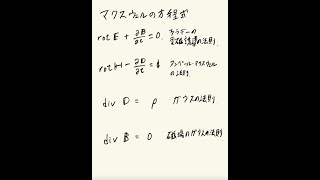 マクスウェルの方程式
rot E + ∂B/∂t = 0. ファラデーの
電磁誘導の法則
rot H − ∂D/∂t = i アンペール・マクスウェル
の法則.
div D = ρ ガウスの法則
div B = 0 磁場のガウスの法則